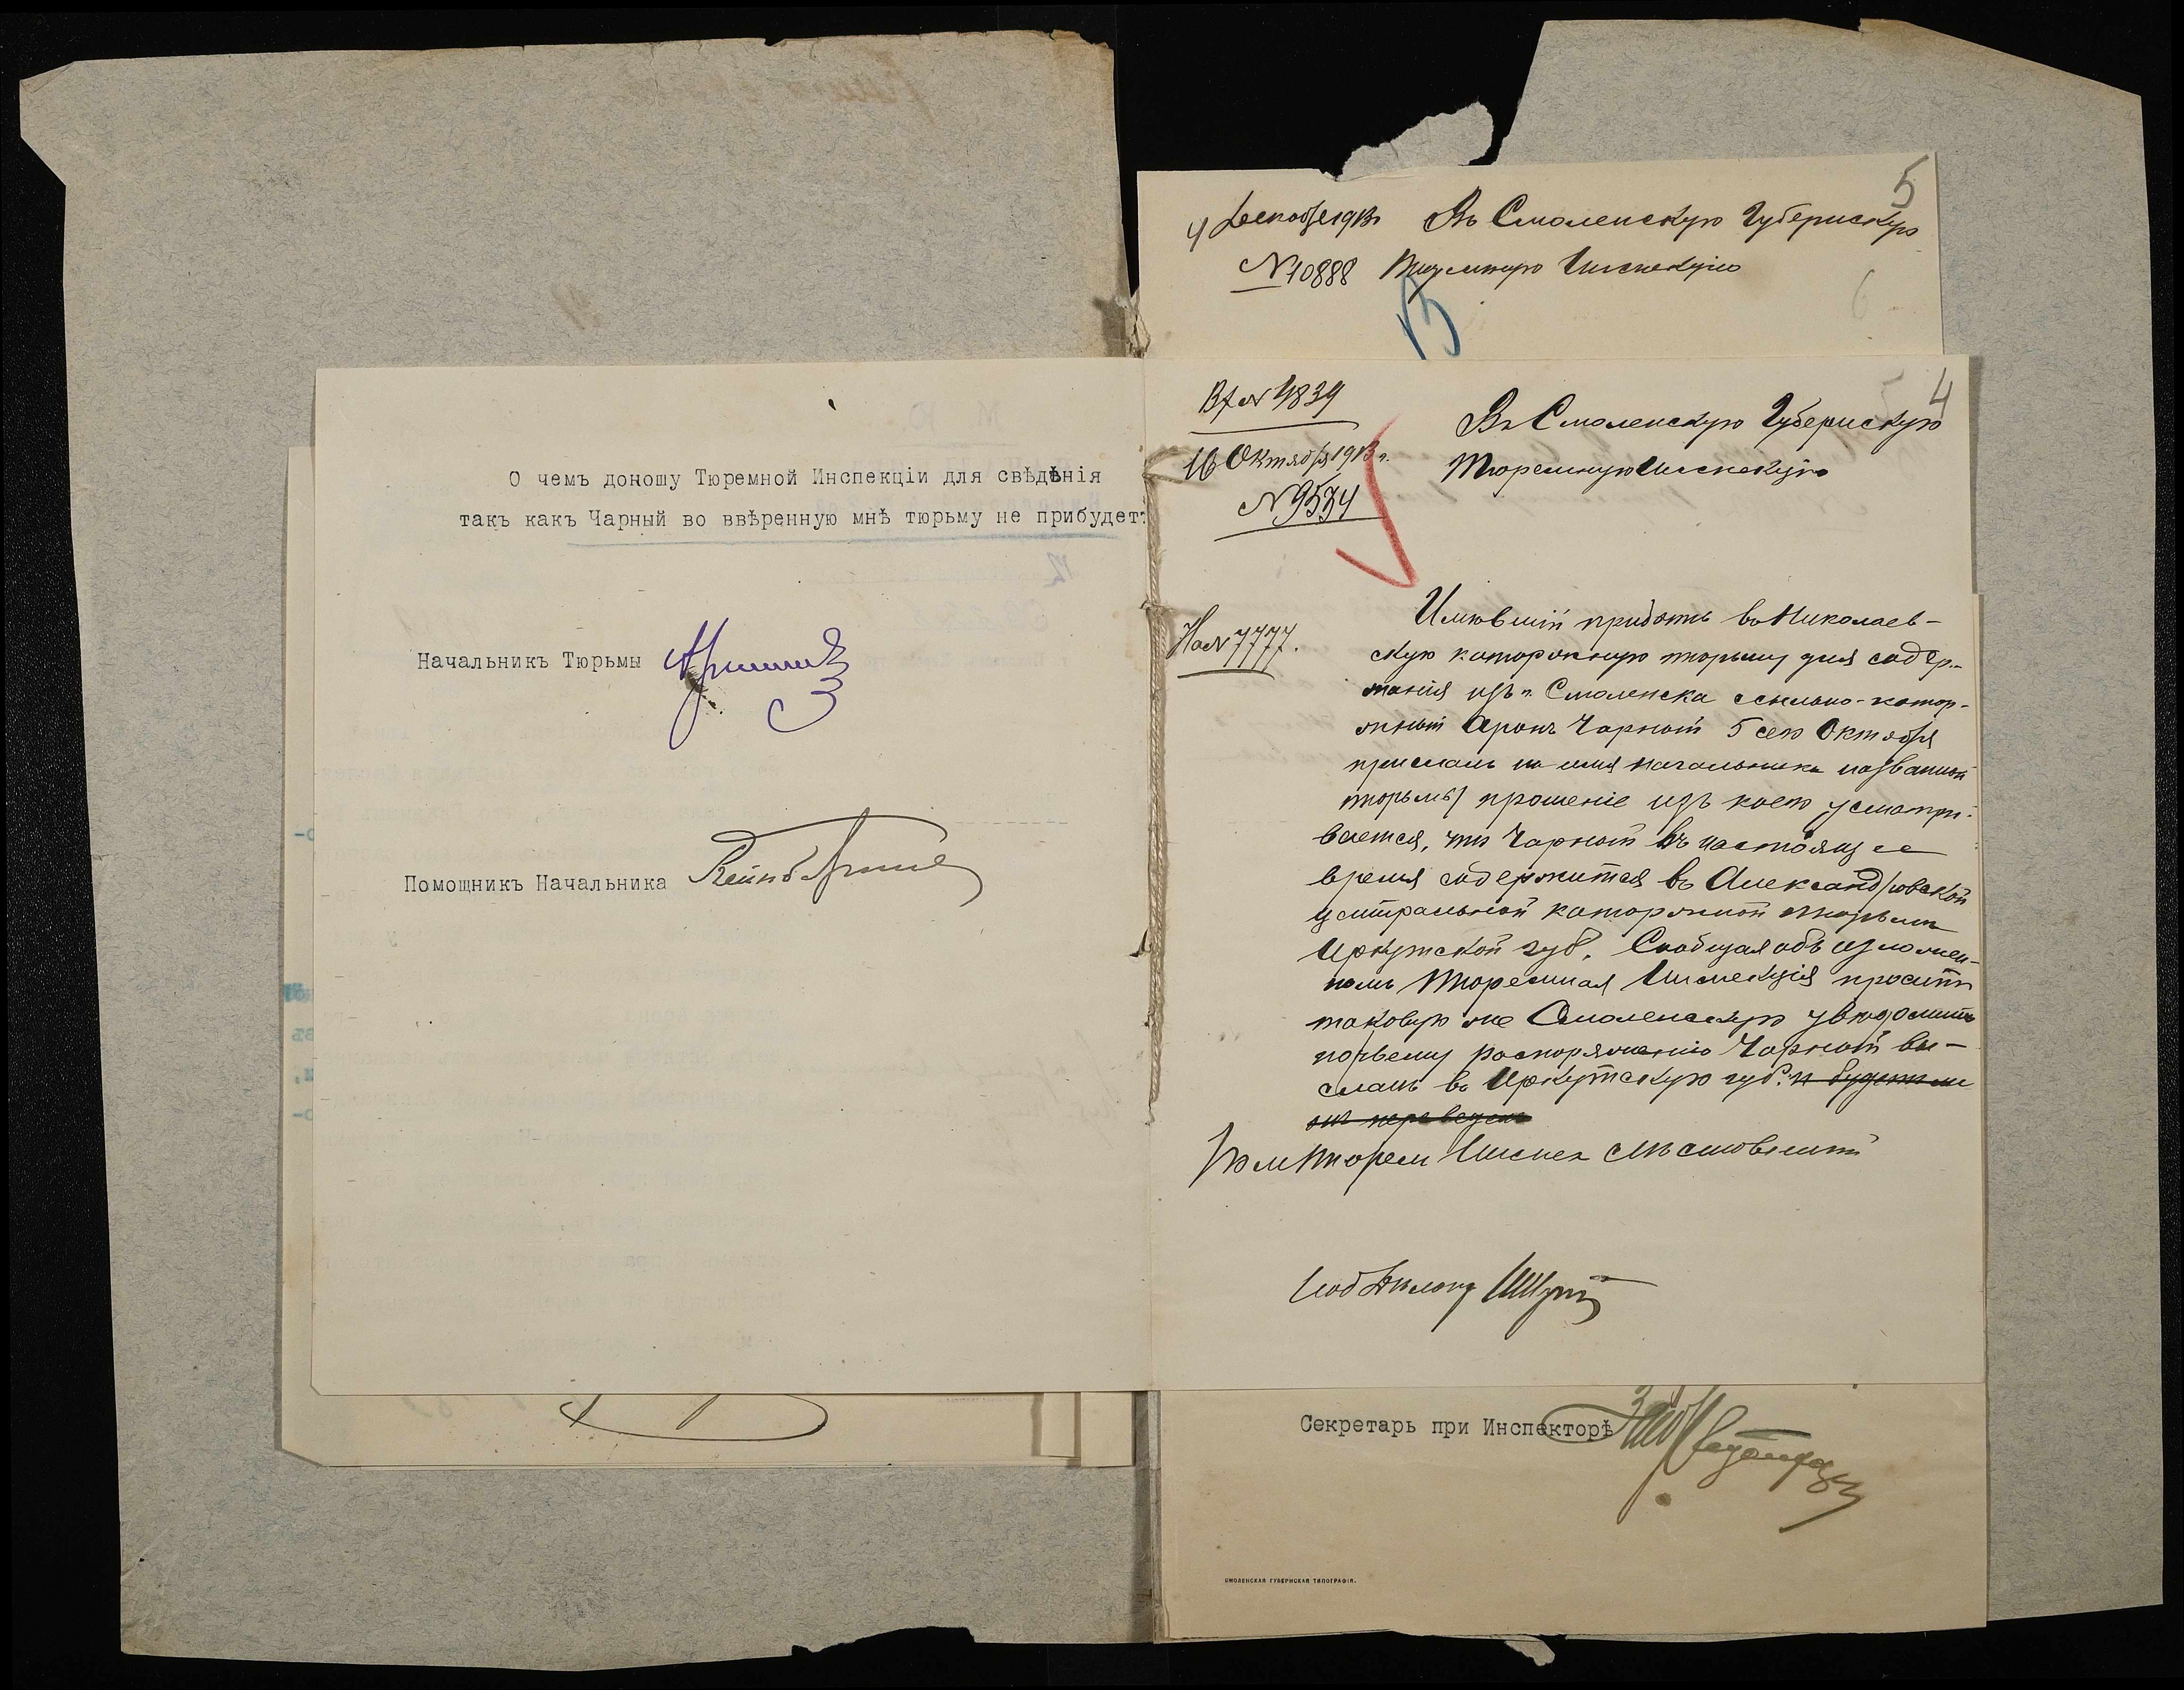 О чемъ доношу Тюремной Инспекціи для свѣдѣнія
такъ какъ Чарный во ввѣренную мнѣ тюрьму не прибудетъ
Начальникъ Тюрьмы
Помощникъ Начальника
5
4 Декабря 1913 г.
Въ Смоленскую Губернскую
№ 10888
Тюремную Инспекцію
4
Вх № 4839
Въ Смоленскую Губернскую
16 Октября 1913 г.
Тюремную Инспекцію
№ 9534
На № 7777.
Имѣвшій прибыть въ Николаев-
скую каторжную тюрьму для содер-
жанія изъ г. Смоленска ссыльно-катор-
жный Аронъ Чарный 5 сего Октября
прислалъ на имя начальника названной
тюрьмы прошеніе изъ коего усматри-
вается, что Чарный въ настоящее
время содержится въ Александровской
центральной каторжной тюрьмѣ
Иркутской губ. Сообщая объ изложен-
номъ Тюремная Инспекція проситъ
таковую же Смоленскую увѣдомить
по чьему распоряженію Чарный вы-
сланъ въ Иркутскую губ. и будетъ ли
онъ переведенъ
Пом Тюрем Инспек
Секретарь при Инспекторѣ
СМОЛЕНСКАЯ ГУБЕРНСКАЯ ТИПОГРАФІЯ.